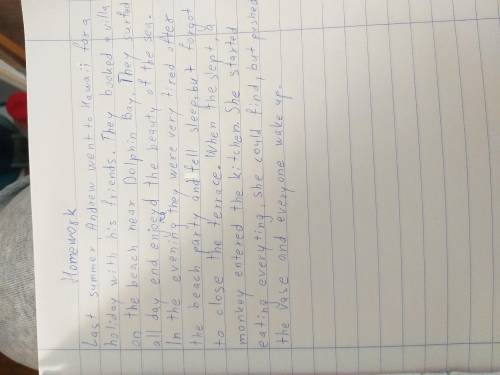 Homework
Last summer Andrew went to Hawaii for a
holiday with his friends. They booked a villa
on the beach near Dolphin Bay. They surfed
all day end enjoyd the beauty of the sea.
In the evening they were very tired after
the beach party and fell sleep, but forgot
to close the terrace. When the slept, a
monkey entered the kitchen. She started
eating everyting, she could find, but pushed
the vase and everyone wake up.